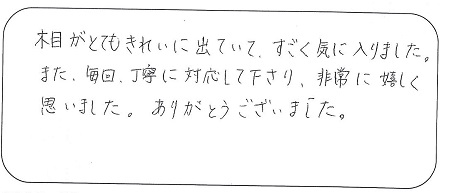 木目がとてもきれいに出ていて、すごく気に入りました。
また、毎回、丁寧に対応して下さり、非常に嬉しく
思いました。ありがとうございました。